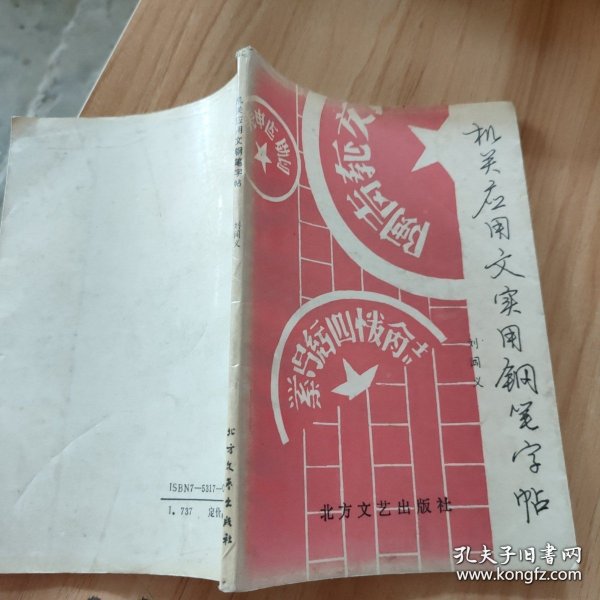 机关应用文实用钢笔字帖
刘闻义
北方文艺出版社
机关应用文钢笔字帖
刘闻义
北方文艺出版社
ISBN7—5317—
I.737 定价
孔夫子旧书网
www.kongfz.com